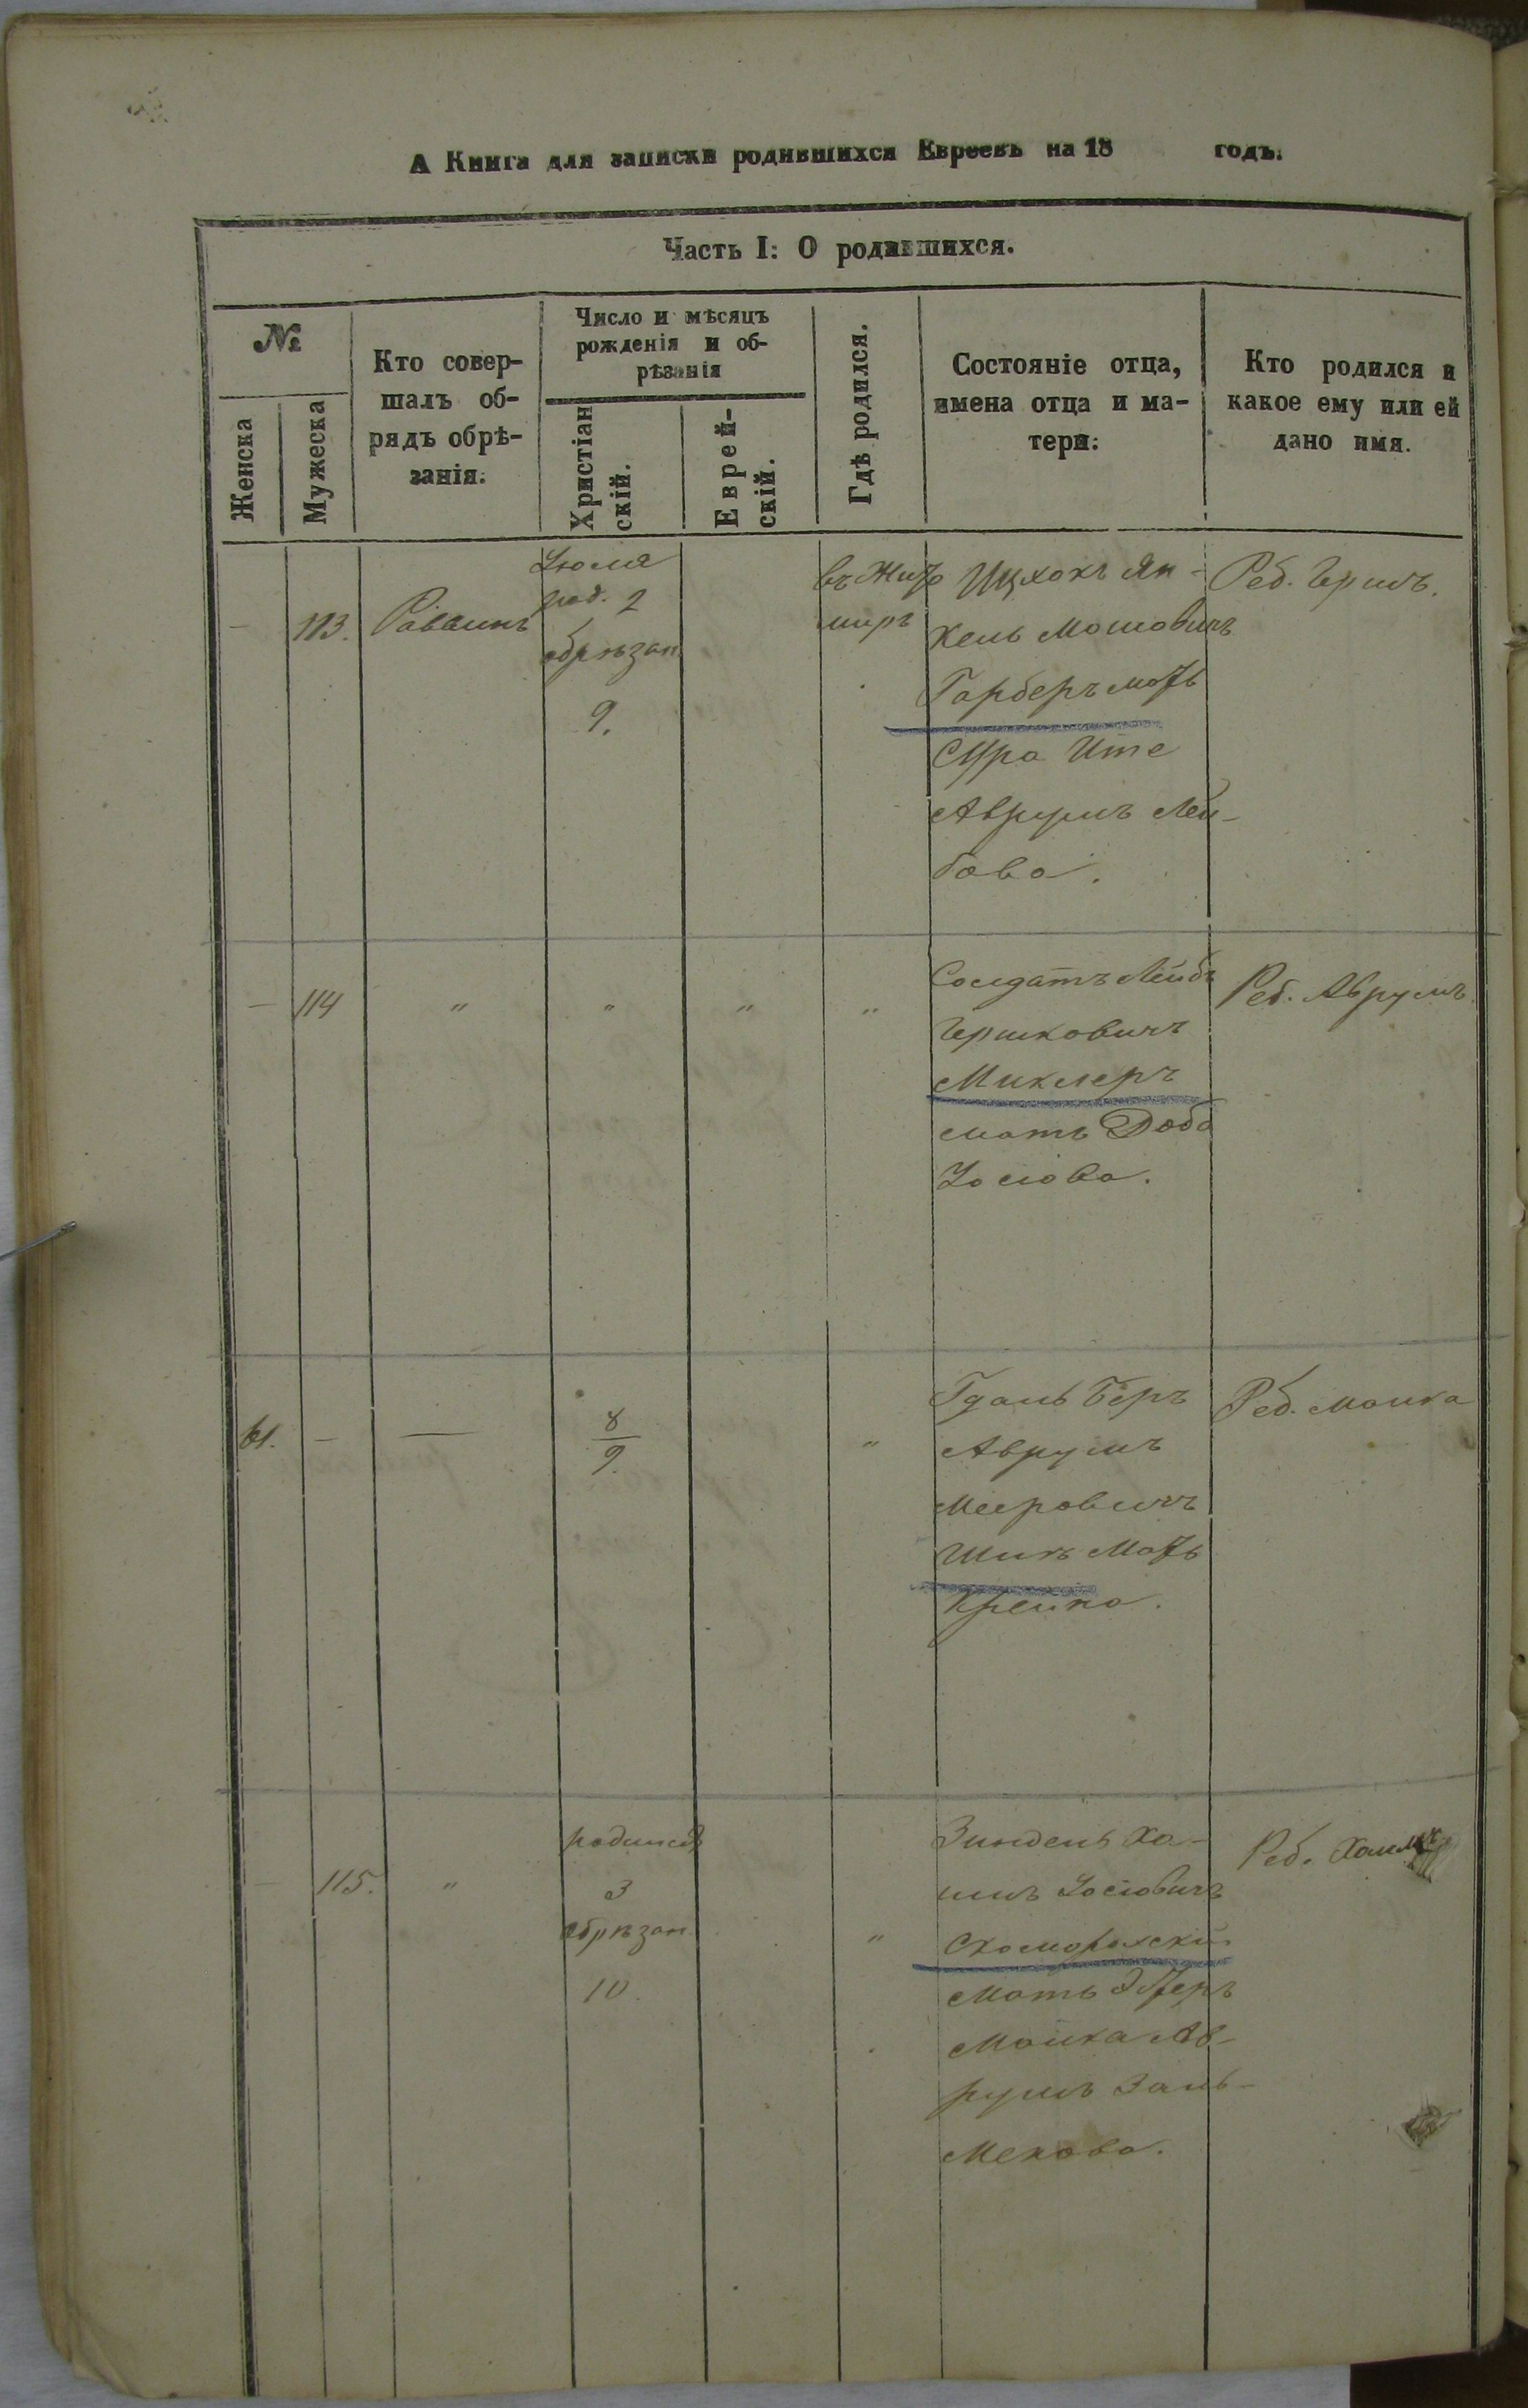 А Книга для записки родившихся Евреевъ на 18 годъ.
Часть I: О родившихся.
№
Женска
Мужеска
Кто совер-
шалъ об-
рядъ обрѣ-
занія.
Число и мѣсяцъ
рожденія и об-
рѣзанія
Христіан
скій.
Еврей-
скій.
Гдѣ родился.
Состояніе отца,
имена отца и ма-
тери:
Кто родился и
какое ему или ей
дано имя.
—
113.
Раввинъ
Іюля
род. 2
обрѣзан.
9.
въ Жито
миръ
Ицхокъ Ян-
кель Мошовичъ
Гарберъ мать
Сура Ите
Аврумъ Лей-
бова.
Реб. Гершъ.
—
114
"
"
"
"
Солдатъ Лейбъ
Гершковичъ
Миклеръ
мать Доба
Іосіова.
Реб. Аврумъ.
61.
—
—
8
9.
"
Гдаль Беръ
Аврумъ
Мееровичъ
Шикъ Мать
Крейна.
Реб. Малка
—
115.
"
родился
3
обрѣзан
10.
"
Зиндель Ха-
имъ Іосіовичъ
Скоморохскій
Мать Эстеръ
Малка Ав-
румъ Зань-
Мекова.
Реб. Хаимъ